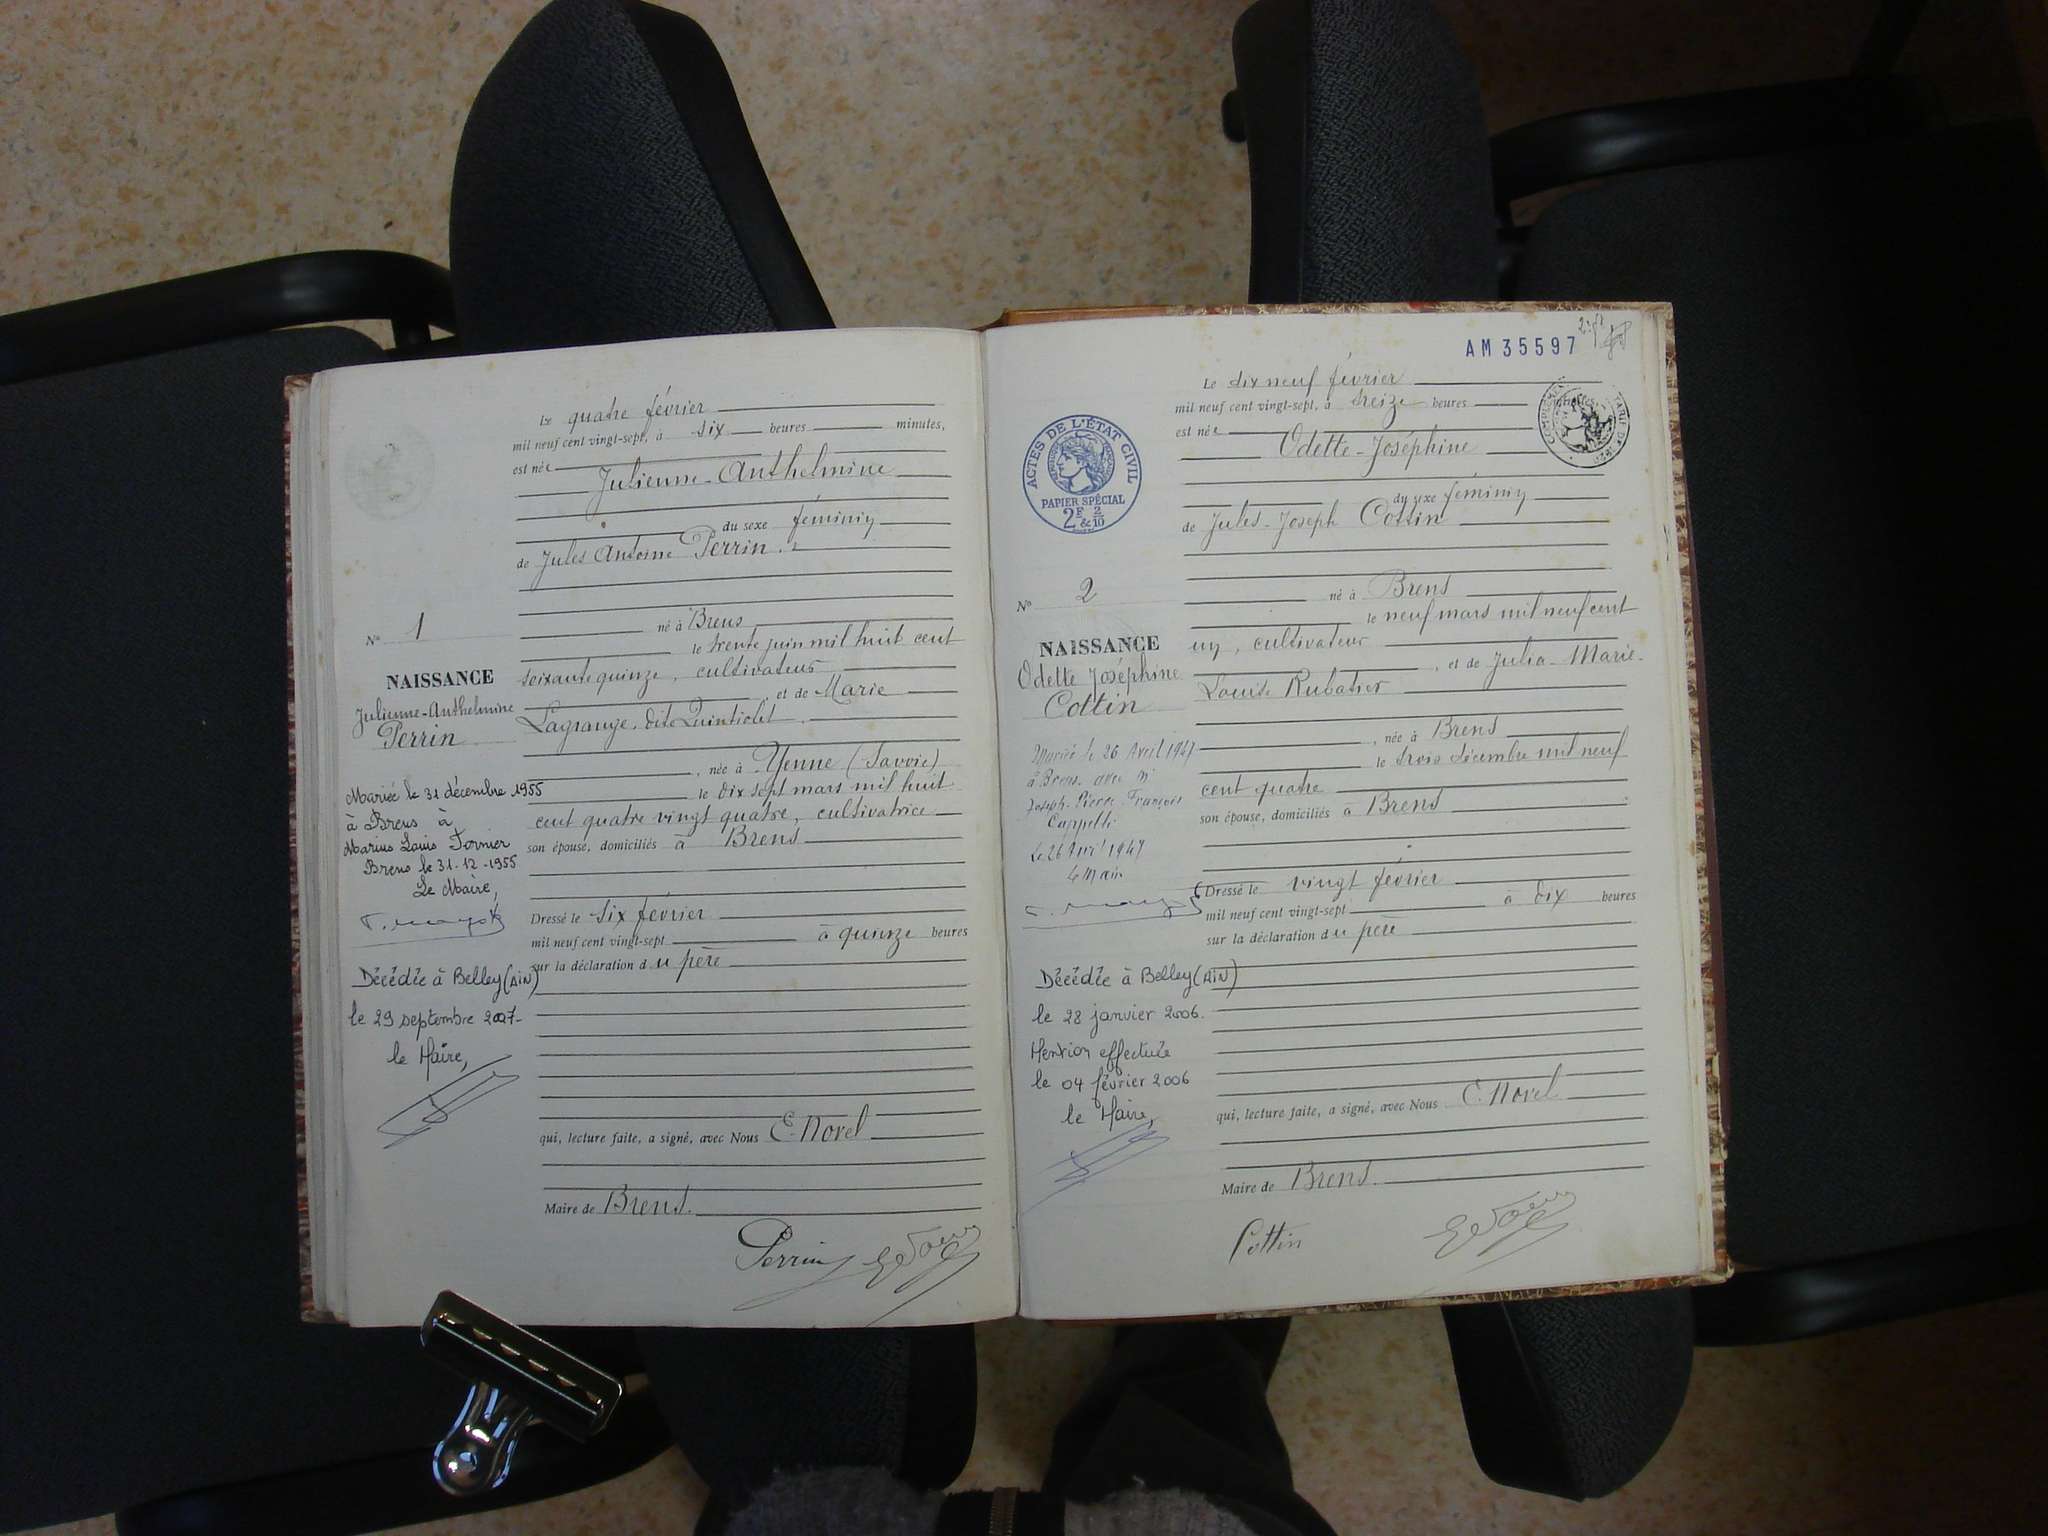 Le quatre février
mil neuf cent vingt-sept, à six heures minutes,
est née
Julienne-Anthelmine
du sexe féminin
de Jules Antoine Perrin
né à Brens
le trente juin mil huit cent
soixante quinze, cultivateur
, et de Marie
Lagrange, dite Quinticlet
, née à Yenne (Savoie)
le dix sept mars mil huit
cent quatre vingt quatre, cultivatrice
son épouse, domiciliés à Brens
Dressé le six février
mil neuf cent vingt-sept à quinze heures
sur la déclaration du père
qui, lecture faite, a signé, avec Nous E. Novel
Maire de Brens.
Perrin
N° 1
NAISSANCE
Julienne-Anthelmine
Perrin
Mariée le 31 décembre 1955
à Brens à
Marius Louis Fornier
Brens le 31-12-1955
Le Maire,
Décédée à Belley (AIN)
le 29 septembre 2007-
le Maire,
AM 35597
Le dix neuf février
mil neuf cent vingt-sept, à treize heures
est née
Odette-Joséphine
du sexe féminin
de Jules-Joseph Cottin
né à Brens
le neuf mars mil neuf cent
un, cultivateur
, et de Julia-Marie-
Louise Rubatier
, née à Brens
le trois décembre mil neuf
cent quatre
son épouse, domiciliés à Brens
Dressé le vingt février
mil neuf cent vingt-sept à dix heures
sur la déclaration du père
qui, lecture faite, a signé, avec Nous E. Novel
Maire de Brens.
Cottin
ACTES DE L'ÉTAT CIVIL
PAPIER SPÉCIAL
2F & 2/10
N° 2
NAISSANCE
Odette Joséphine
Cottin
Mariée le 26 Avril 1947
à Brens avec Mr
Joseph-Pierre François
Cappelli
Le 26 Avril 1947
Le Maire
Décédée à Belley (AIN)
le 28 janvier 2006.
Mention effectuée
le 04 février 2006
le Maire,